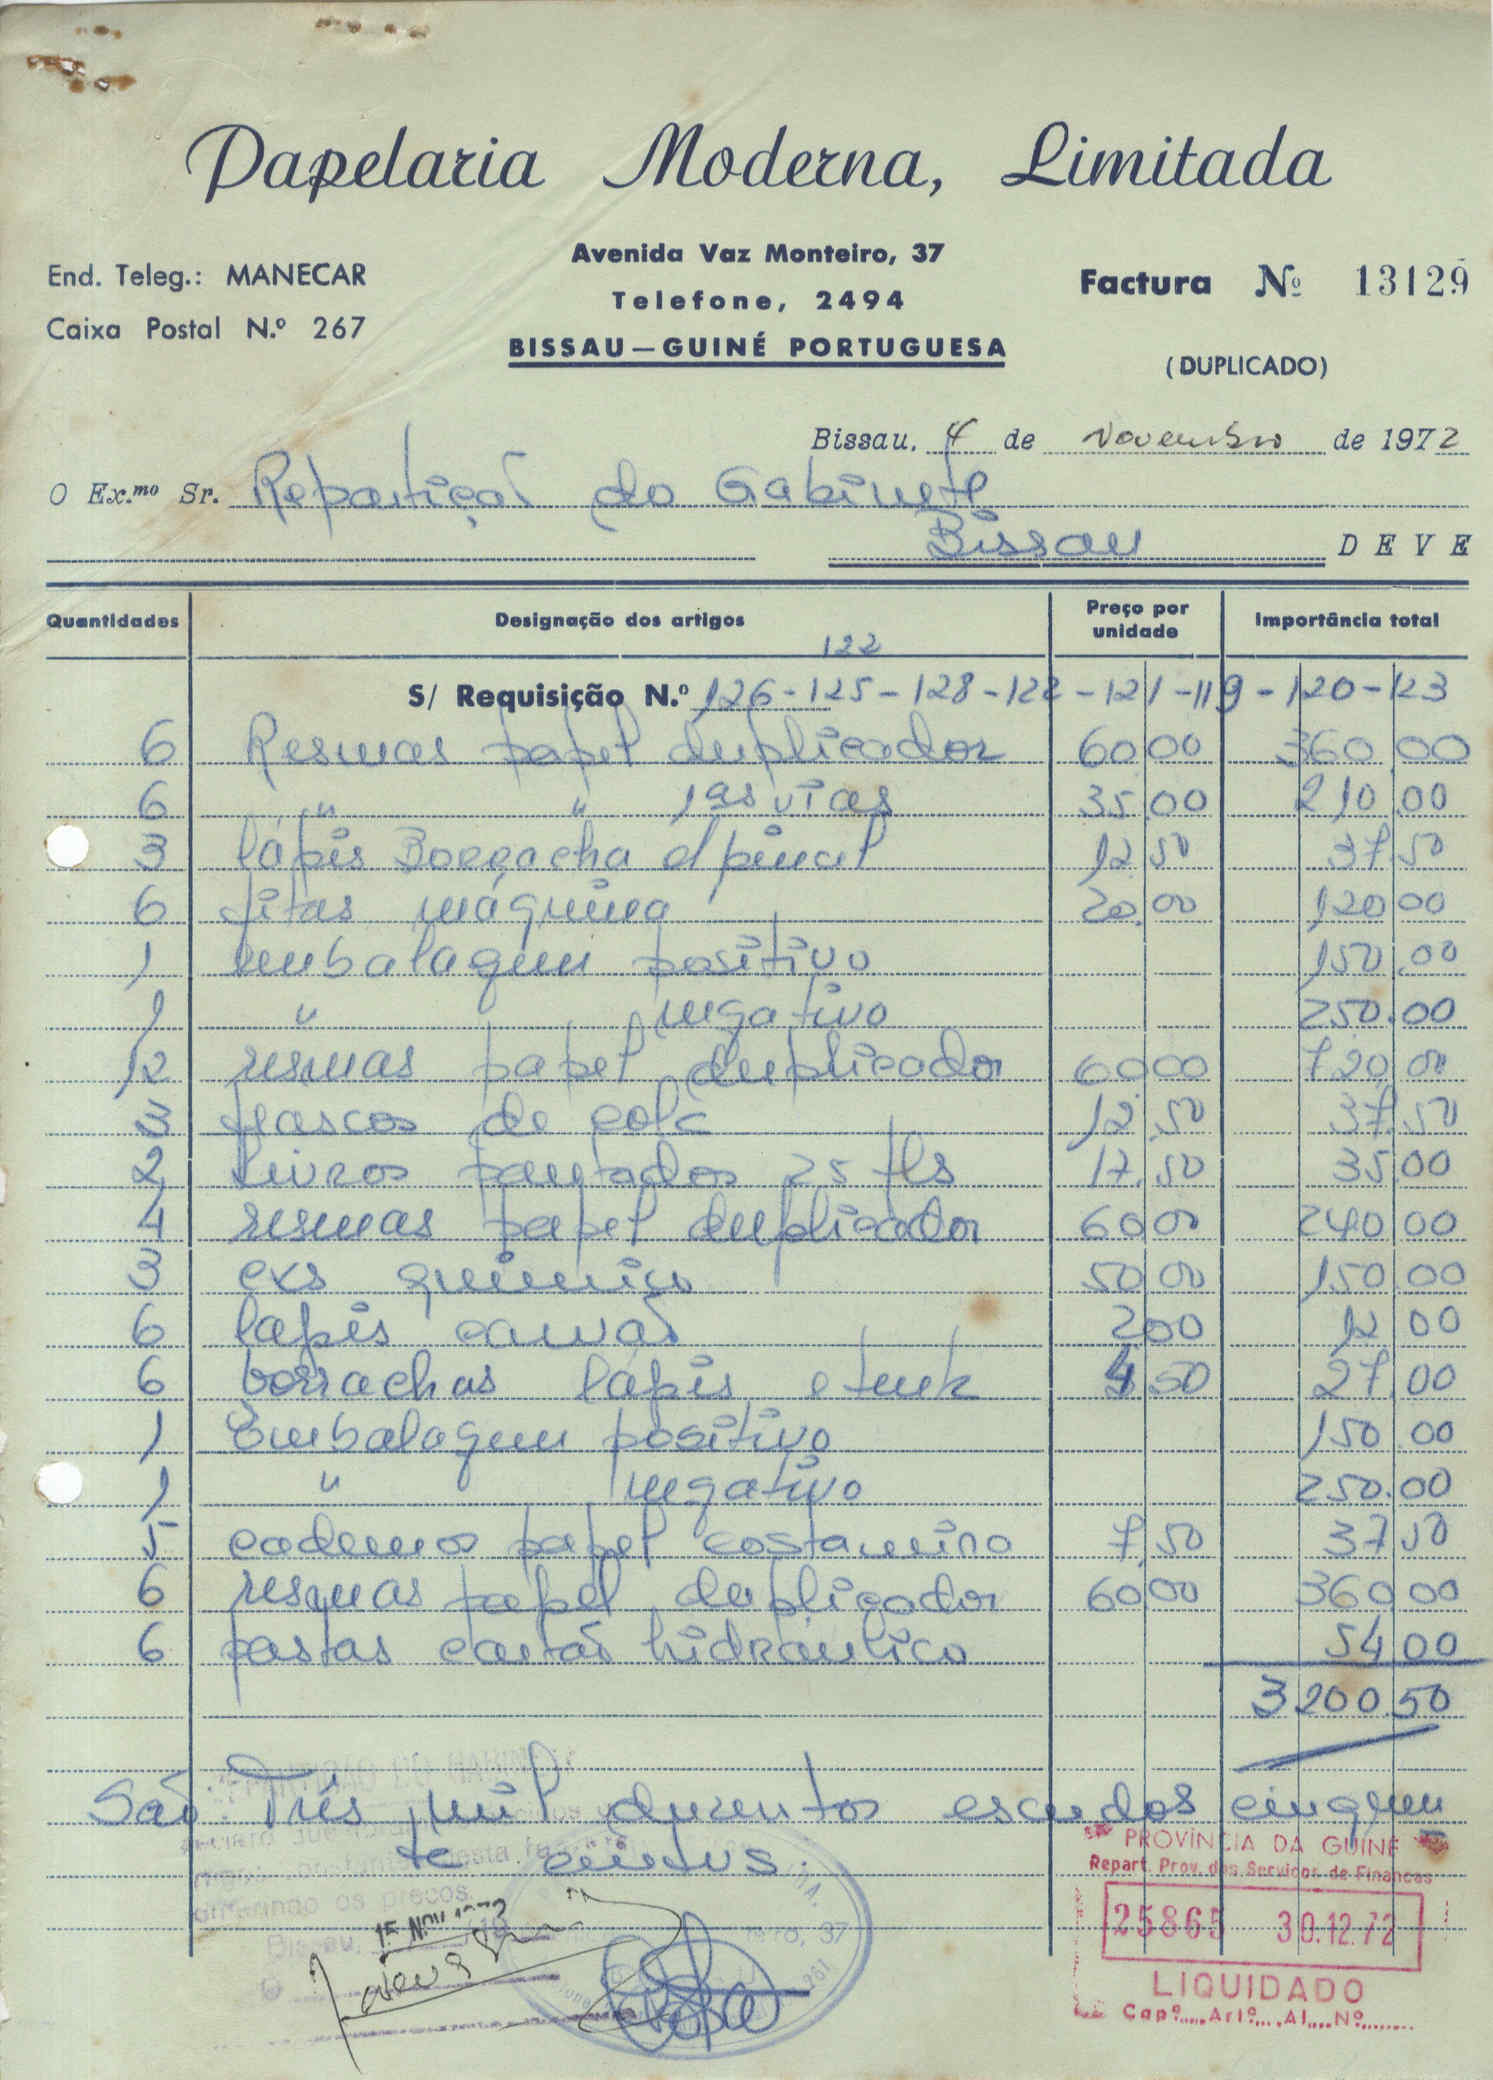 Papelaria Moderna, Limitada
End. Teleg.: MANECAR
Caixa Postal N.º 267
Avenida Vaz Monteiro, 37
Telefone, 2494
BISSAU — GUINÉ PORTUGUESA
Factura Nº 13129
(DUPLICADO)
Bissau, 4 de Novembro de 1972
O Ex.mo Sr. Repartição do Gabinete
Bissau DEVE
Quantidades Designação dos artigos Preço por unidade Importância total
122
S/ Requisição N.º 126-125-128-122-121-119-120-123
6 Resmas papel duplicador 60,00 360,00
6 " " 1as vias 35,00 210,00
3 lápis Borracha c/ pincel 12,50 37,50
6 fitas máquina 20,00 120,00
1 embalagem positivo 150,00
1 " negativo 250,00
12 resmas papel duplicador 60,00 720,00
3 frascos de cola 12,50 37,50
2 Livros pautados 25 fls 17,50 35,00
4 resmas papel duplicador 60,00 240,00
3 cxs quimiço 50,00 150,00
6 lapis carvão 2,00 12,00
6 borrachas lápis e tink 4,50 27,00
1 Embalagem positivo 150,00
1 " negativo 250,00
5 cadernos papel costaneiro 7,50 37,50
6 resmas papel duplicador 60,00 360,00
6 pastas cartão hidráulico 54,00
3200,50
São: Três mil duzentos escudos cinquen
ta centavos.
os preços
Bissau,
15 NOV 1972
PROVÍNCIA DA GUINÉ
Repart. Prov. dos Serviços de Finanças
25865 30.12.72
LIQUIDADO
Capº.....Artº....Al....Nº........